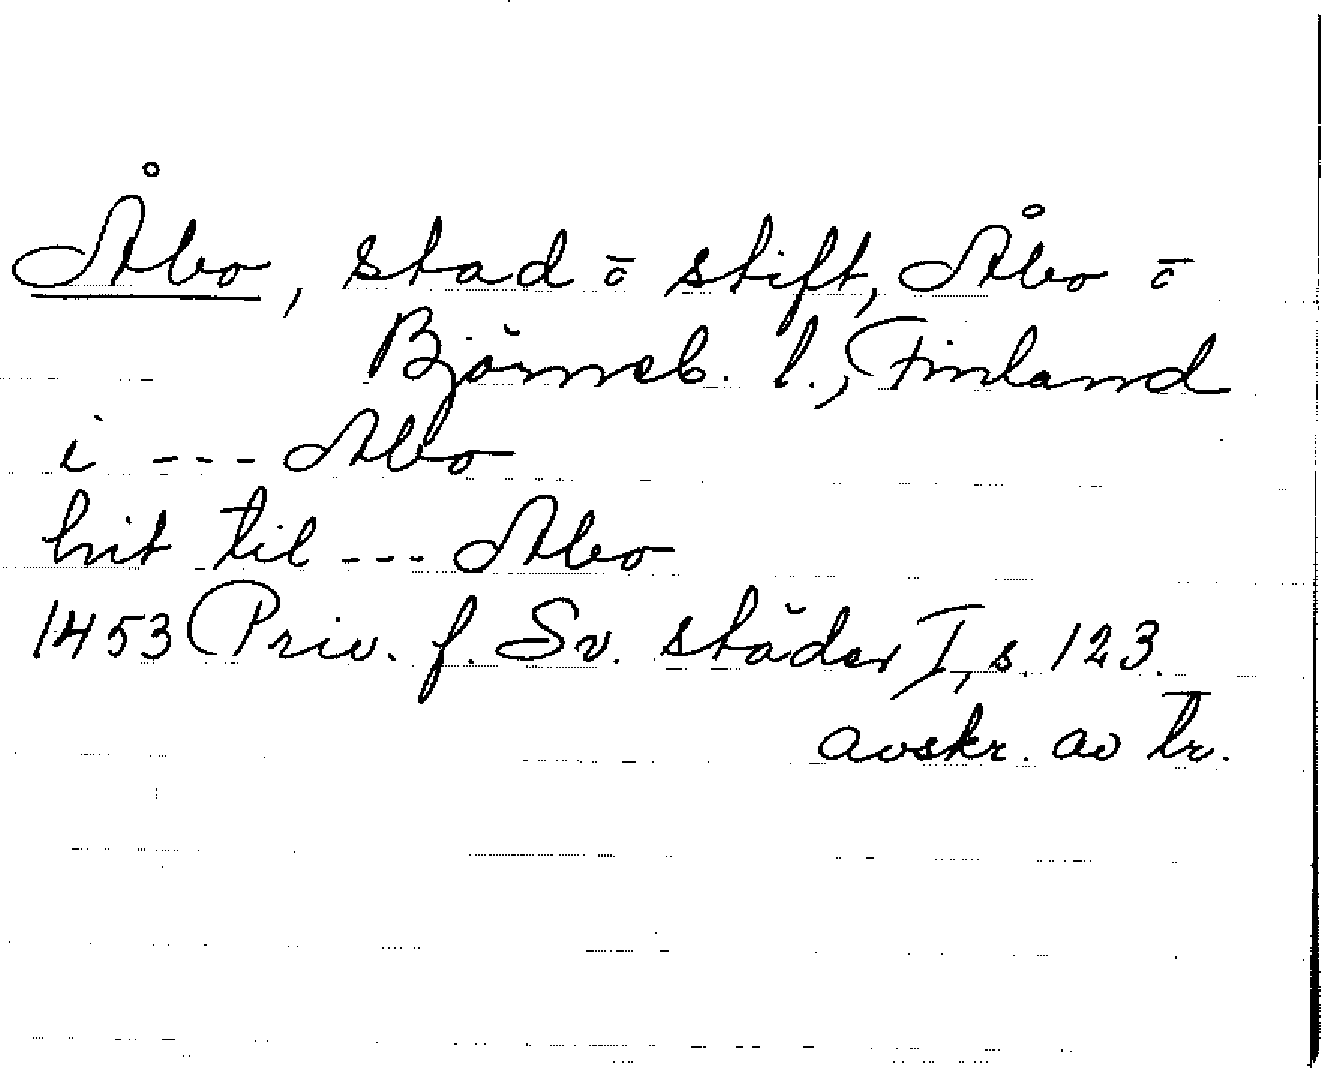 Åbo, stad o stift, Åbo o
Björneb. l., Finland
i --- Abo
hit til --- Abo
1453 Priv. f. Sv. städer I, s. 123.
avskr. av tr.